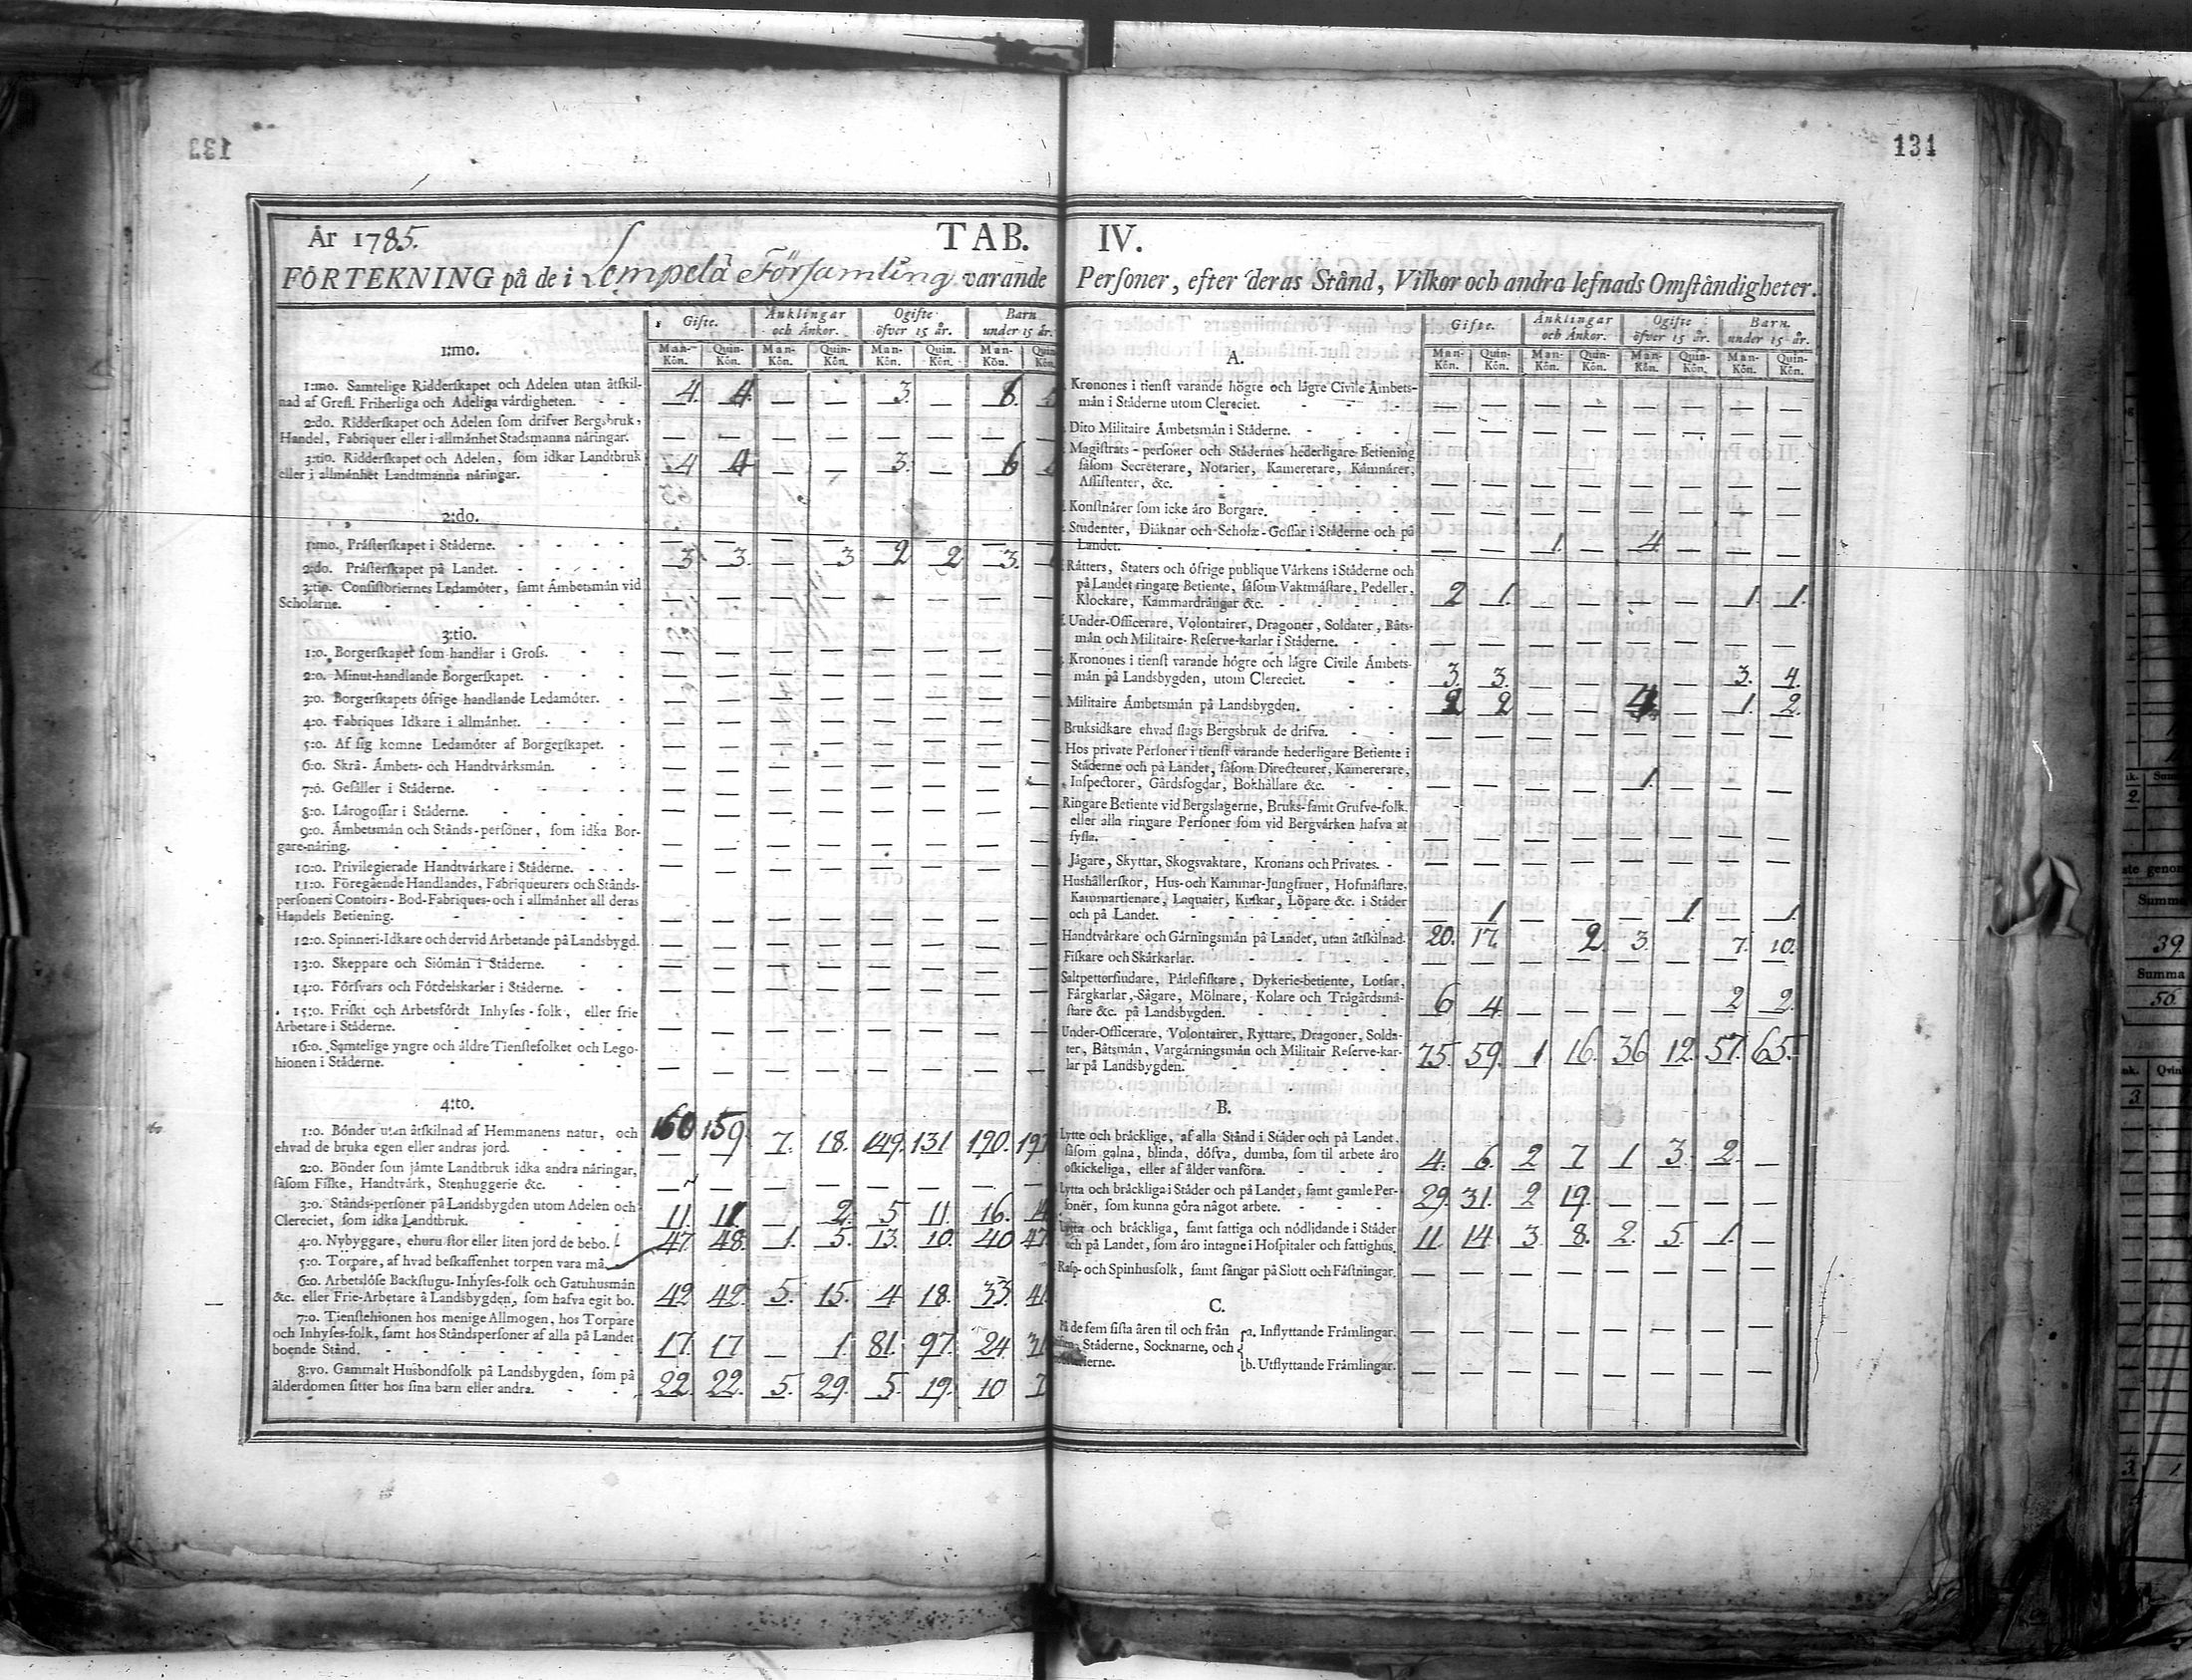 131
År 1785.
TAB. IV.
FÖRTEKNING på de i Lempelä Församling varande Personer, efter deras Stånd, Vilkor och andra lefnads Omständigheter.
Gifte. Änklingar och Änkor. Ogifte öfver 15 år. Barn under 15 år.
Man-Kön. Quin-Kön. Man-Kön. Quin-Kön. Man-Kön. Quin-Kön. Man-Kön. Quin-Kön.
1:mo.
1:mo. Samtelige Ridderskapet och Adelen utan åtskil-
nad af Grefl. Friherliga och Adeliga värdigheten. 4. 4. — — 3. — 6.
2:do. Ridderskapet och Adelen som drifver Bergsbruk,
Handel, Fabriquer eller i allmänhet Stadsmanna näringar. — — — — — — —
3:tio. Ridderskapet och Adelen, som idkar Landtbruk
eller i allmänhet Landtmanna näringar. 4 4 — — 3. — 6
2:do.
1:mo. Prästerskapet i Städerne. — — — — — — —
2:do. Prästerskapet på Landet. 3. 3. — 3 2 2 3.
3:tio. Consistoriernes Ledamöter, samt Ämbetsmän vid
Scholarne. — — — — — — —
3:tio.
1:o. Borgerskapet som handlar i Gross. — — — — — — —
2:o. Minut-handlande Borgerskapet. — — — — — — —
3:o. Borgerskapets öfrige handlande Ledamöter. — — — — — — —
4:o. Fabriques Idkare i allmänhet. — — — — — — —
5:o. Af sig komne Ledamöter af Borgerskapet. — — — — — — —
6:o. Skrå-Ämbets- och Handtvärksmän. — — — — — — —
7:o. Gesäller i Städerne. — — — — — — —
8:o. Lärogossar i Städerne. — — — — — — —
9:o. Ämbetsmän och Stånds-personer, som idka Bor-
gare-näring. — — — — — — —
10:o. Privilegierade Handtvärkare i Städerne. — — — — — — —
11:o. Föregående Handlandes, Fabriqueurers och Stånds-
personers Contoirs-Bod-Fabriques- och i allmänhet all deras
Handels Betiening. — — — — — — —
12:o. Spinneri-Idkare och dervid Arbetande på Landsbygd. — — — — — — —
13:o. Skeppare och Siömän i Städerne. — — — — — — —
14:o. Försvars och Fördelskarlar i Städerne. — — — — — — —
15:o. Friskt och Arbetsfördt Inhyses-folk, eller frie
Arbetare i Städerne. — — — — — — —
16:o. Samtelige yngre och äldre Tienstefolket och Lego-
hionen i Städerne. — — — — — — —
4:to.
1:o. Bönder utan åtskilnad af Hemmanens natur, och
ehvad de bruka egen eller andras jord. 160 159. 7. 18. 149. 131 190.
2:o. Bönder som jämte Landtbruk idka andra näringar,
såsom Fiske, Handtvärk, Stenhuggerie &c. — — — — — — —
3:o. Stånds-personer på Landsbygden utom Adelen och
Clereciet, som idka Landtbruk. 11. 11. — 2. 5 11. 16.
4:o. Nybyggare, ehuru stor eller liten jord de bebo. 47. 48. 1. 3. 13. 10. 40
5:o. Torpare, af hvad beskaffenhet torpen vara må.
6:o. Arbetslöse Backstugu-Inhyses-folk och Gatuhusmän
&c. eller Frie-Arbetare å Landsbygden, som hafva egit bo. 42 42. 5. 15. 4 18. 33.
7:o. Tienstehionen hos menige Allmogen, hos Torpare
och Inhyses-folk, samt hos Ståndspersoner af alla på Landet
boende Stånd. 17. 17 — 1. 81. 97. 24.
8:vo. Gammalt Husbondfolk på Landsbygden, som på
ålderdomen sitter hos sina barn eller andra. 22. 22. 5. 29. 5. 19. 10
Gifte. Änklingar och Änkor. Ogifte öfver 15 år. Barn. under 15 år.
Man-Kön. Quin-Kön. Man-Kön. Quin-Kön. Man-Kön. Quin-Kön. Man-Kön. Quin-Kön.
A.
Kronones i tienst varande högre och lägre Civile Ämbets-
män i Städerne utom Clereciet. — — — — — — — —
Dito Militaire Ämbetsmän i Städerne. — — — — — — — —
Magistrats-personer och Städernes hederligare Betiening
såsom Secreterare, Notarier, Kamererare, Kämnärer,
Assistenter, &c. — — — — — — — —
Konstnärer som icke äro Borgare. — — — — — — — —
Studenter, Diäknar och Scholæ-Gossar i Städerne och på
Landet. — — 1. — 4. — — —
Rätters, Staters och öfrige publique Värkens i Städerne och
på Landet ringare Betiente, såsom Vaktmästare, Pedeller,
Klockare, Kammardrängar &c. 2 1. — — — — 1. 1.
Under-Officerare, Volontairer, Dragoner, Soldater, Båts-
män och Militaire-Reserve-karlar i Städerne. — — — — — — — —
Kronones i tienst varande högre och lägre Civile Ämbets-
män på Landsbygden, utom Clereciet. 3. 3. — — — — 3. 4.
Militaire Ämbetsmän på Landsbygden. 2 2 — — 4 — 1. 2.
Bruksidkare ehvad slags Bergsbruk de drifva. — — — — — — — —
Hos private Personer i tienst varande hederligare Betiente i
Städerne och på Landet, såsom Directeurer, Kamererare,
Inspectorer, Gårdsfogdar, Bokhållare &c. — — — — 1. — — —
Ringare Betiente vid Bergslagerne, Bruks-samt Grufve-folk.
eller alla ringare Personer som vid Bergvärken hafva at
sysla. — — — — — — — —
Jägare, Skyttar, Skogsvaktare, Kronans och Privates. — — — — — — — —
Hushållerskor, Hus-och Kammar-Jungfruer, Hofmästare,
Kammartienare, Laquaier, Kuskar, Löpare &c. i Städer
och på Landet. — 1 — — — 1. — 1.
Handtvärkare och Gärningsmän på Landet, utan åtskilnad. 20. 17. 2. 3. 7. 10.
Fiskare och Skärkarlar. — — — — — — — —
Saltpettersiudare, Pärlefiskare, Dykerie-betiente, Lotsar,
Färgkarlar, Sågare, Mölnare, Kolare och Trägårdsmä-
stare &c. på Landsbygden. 6 4 — — — — 2 2.
Under-Officerare, Volontairer, Ryttare, Dragoner, Solda-
ter, Båtsmän, Vargärningsmän och Militair Reserve-kar-
lar på Landsbygden. 75. 59. 1 16. 36 12. 57. 65.
B.
Lytte och bräcklige, af alla Stånd i Städer och på Landet.
såsom galna, blinda, döfva, dumba, som til arbete äro
oskickeliga, eller af ålder vanföra. 4. 6. 2 7 1 3. 2. —
Lytta och bräckliga i Städer och på Landet, samt gamle Per-
soner, som kunna göra något arbete. 29. 31. 2 19. — — — —
Lytta och bräckliga, samt fattiga och nödlidande i Städer
och på Landet, som äro intagne i Hospitaler och fattighus. 11. 14 3. 8. 2. 5. 1. —
Rasp-och Spinhusfolk, samt fångar på Slott och Fästningar. — — — — — — — —
C.
På de fem sista åren til och från a. Inflyttande Främlingar. — — — — — — — —
Städerne, Socknarne, och
b. Utflyttande Främlingar. — — — — — — — —